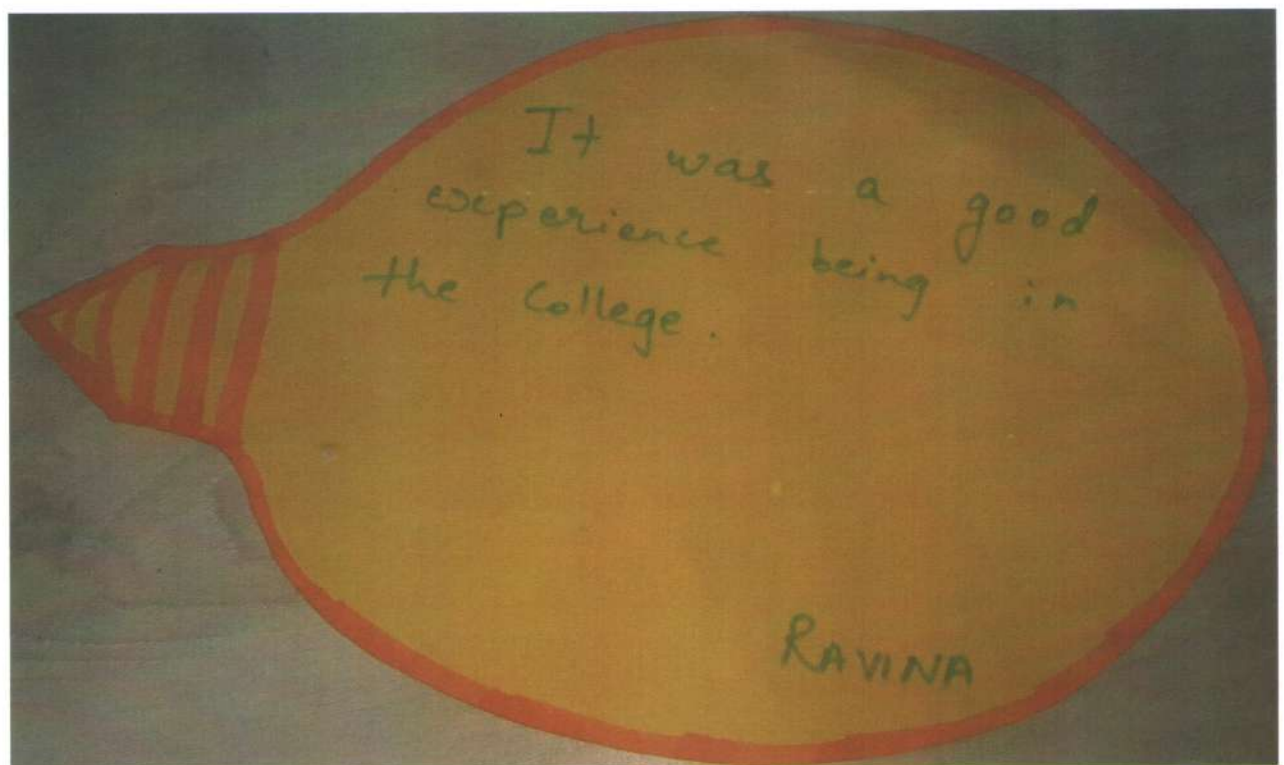 It was a good
experience being in
the College.
RAVINA